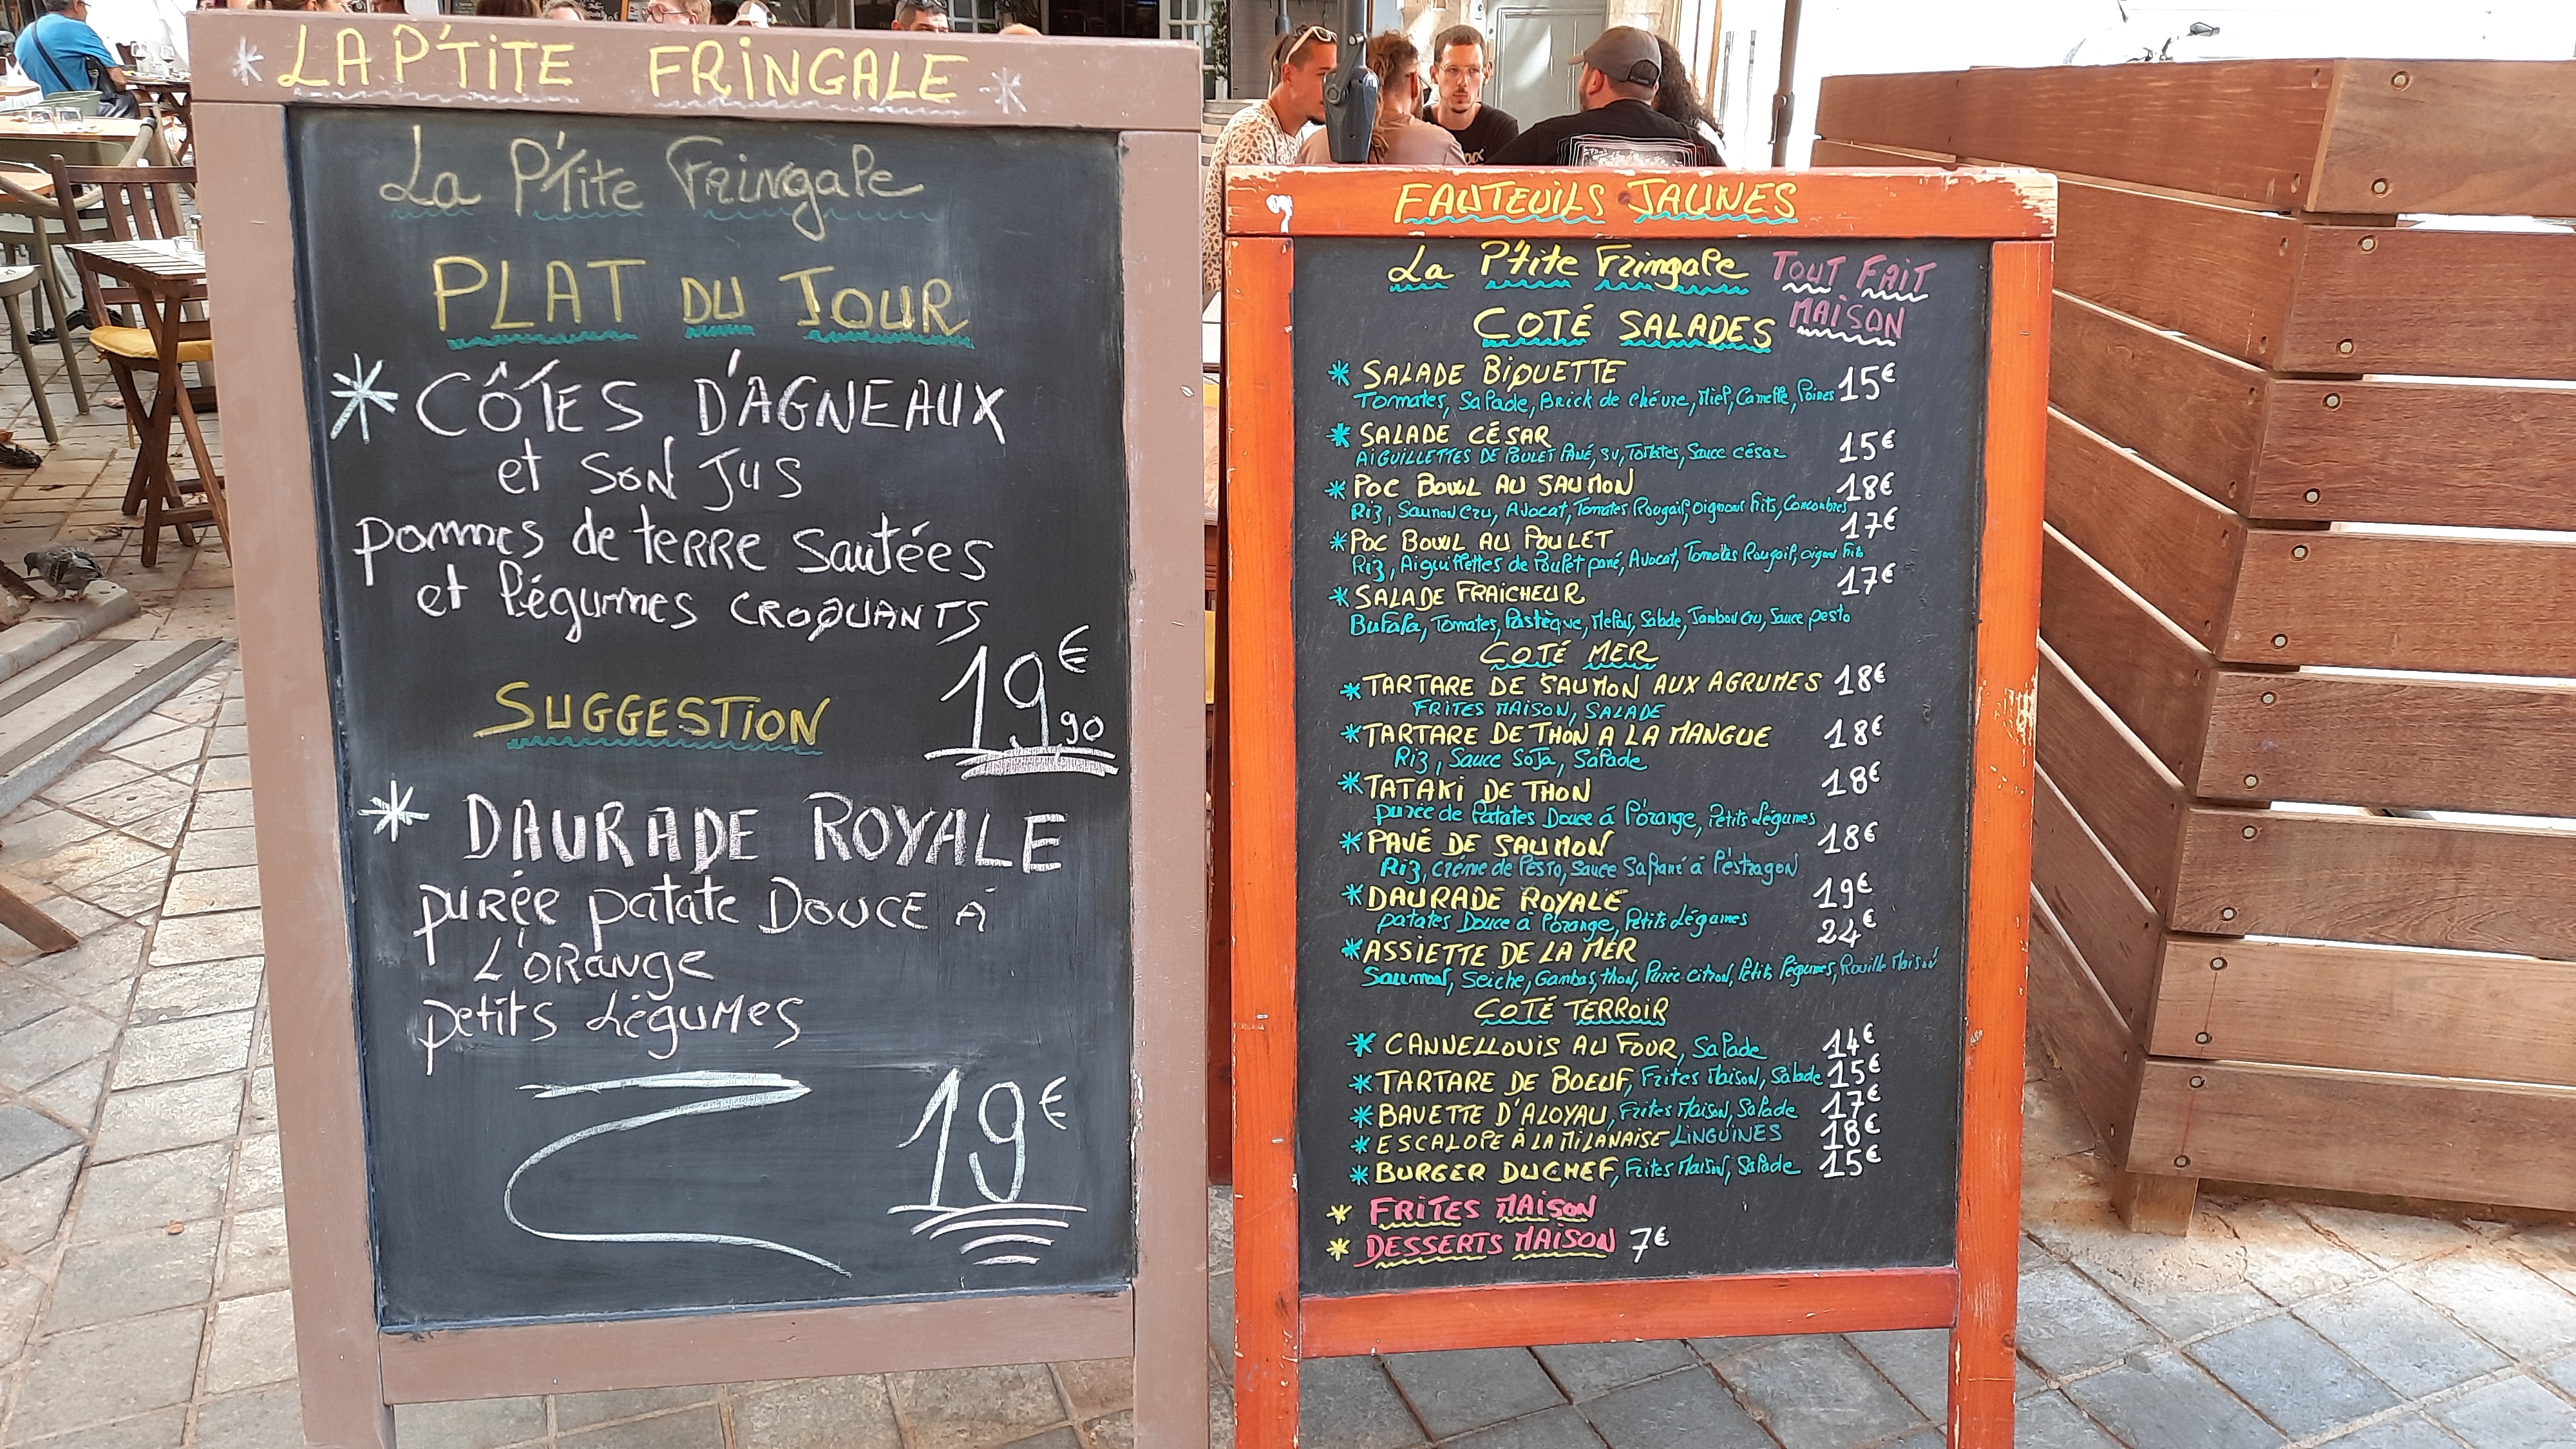 * LA P'TITE FRINGALE *
La P'tite Fringale
PLAT DU JOUR
* CÔTES D'AGNEAUX
et SON JUS
pommes de terre Sautées
et légumes CROQUANTS
19€90
SUGGESTION
* DAURADE ROYALE
PURÉE patate DOUCE À
L'ORANGE
petits Légumes
19€
FAUTEUILS JAUNES
La P'tite Fringale TOUT FAIT
MAISON
COTÉ SALADES
* SALADE BIQUETTE 15€
Tomates, Salade, Brick de chévre, Miel, Canelle, Poires
* SALADE CÉSAR 15€
AIGUILLETTES DE POULET PANÉ, Tomates, Sauce césar
* POC BOWL AU SAUMON 18€
Riz, Saumon Cru, Avocat, Tomates Rougail, oignons frits, Concombres
* POC BOWL AU POULET 17€
Riz, Aiguillettes de Poulet pané, Avocat, Tomates Rougail, oignons frits
* SALADE FRAICHEUR 17€
Bufala, Tomates, Pastèque, Melon, Salade, Jambon Cru, Sauce pesto
COTÉ MER
* TARTARE DE SAUMON AUX AGRUMES 18€
FRITES MAISON, SALADE
* TARTARE DE THON A LA MANGUE 18€
Riz, Sauce Soja, Salade
* TATAKI DE THON 18€
purée de Patates Douce à l'orange, Petits Légumes
* PAVÉ DE SAUMON 18€
Riz, Créme de Pesto, Sauce Safrané à l'éstragon
* DAURADE ROYALE 19€
patates Douce à l'orange, Petits Légumes
* ASSIETTE DE LA MER 24€
Saumon, Seiche, Gambas, thon, Purée citron, Petits légumes, Rouille Maison
COTÉ TERROIR
* CANNELLONIS AU FOUR, Salade 14€
* TARTARE DE BOEUF, Frites Maison, Salade 15€
* BAVETTE D'ALOYAU, Frites Maison, Salade 17€
* ESCALOPE À LA MILANAISE LINGUINES 18€
* BURGER DU CHEF, Frites Maison, Salade 15€
* FRITES MAISON
* DESSERTS MAISON 7€